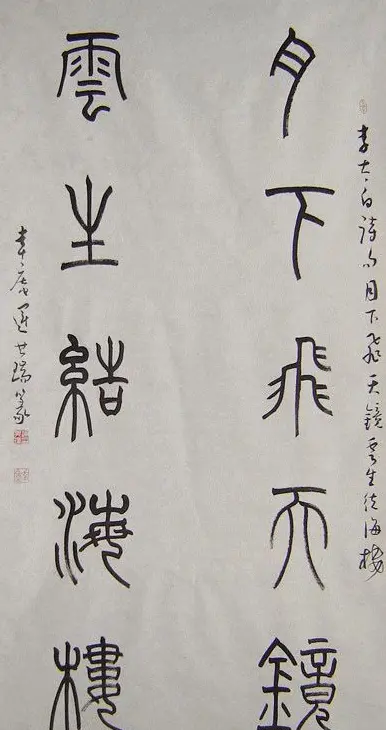 李太白詩句月下飛天鏡雲生結海樓
月下飛天鏡
雲生結海樓
世瑞篆